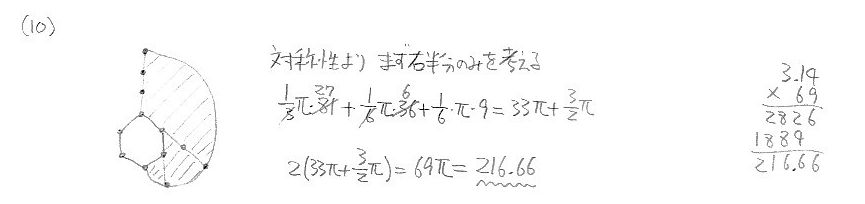 (10)
対称性より まず右半分のみを考える
1/3 π・81 27 + 1/6 π・36 6 + 1/6・π・9 = 33π + 3/2 π
2(33π + 3/2 π) = 69π = 216.66
3.14
× 69
2826
1884
216.66